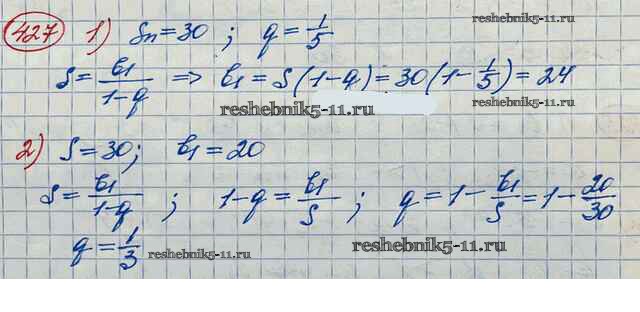 427 1) Sn = 30 ; q = 1/5 reshebnik5-11.ru
S = b1/1-q => b1 = S (1-q) = 30 (1 - 1/5) = 24
reshebnik5-11.ru
2) S = 30; b1 = 20
S = b1/1-q ; 1-q = b1/S ; q = 1 - b1/S = 1 - 20/30
q = 1/3 reshebnik5-11.ru reshebnik5-11.ru